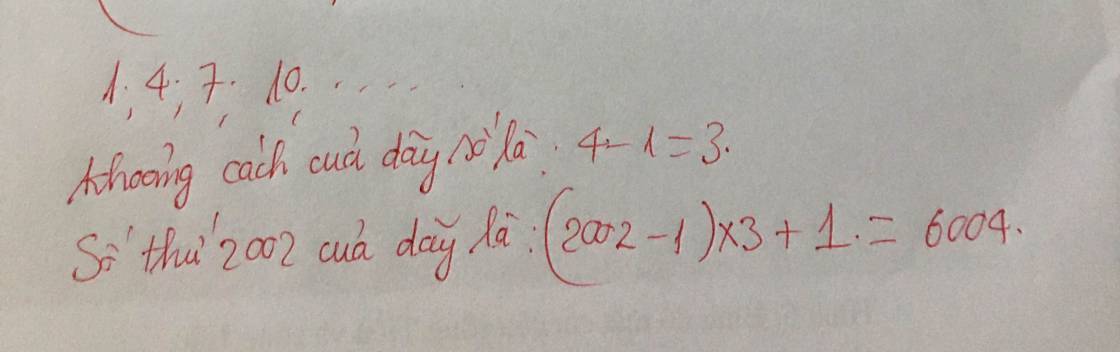 1; 4; 7; 10; .....
Khoảng cách của dãy số là: 4 - 1 = 3.
Số thứ 2002 của dãy là: (2002 - 1) x 3 + 1. = 6004.